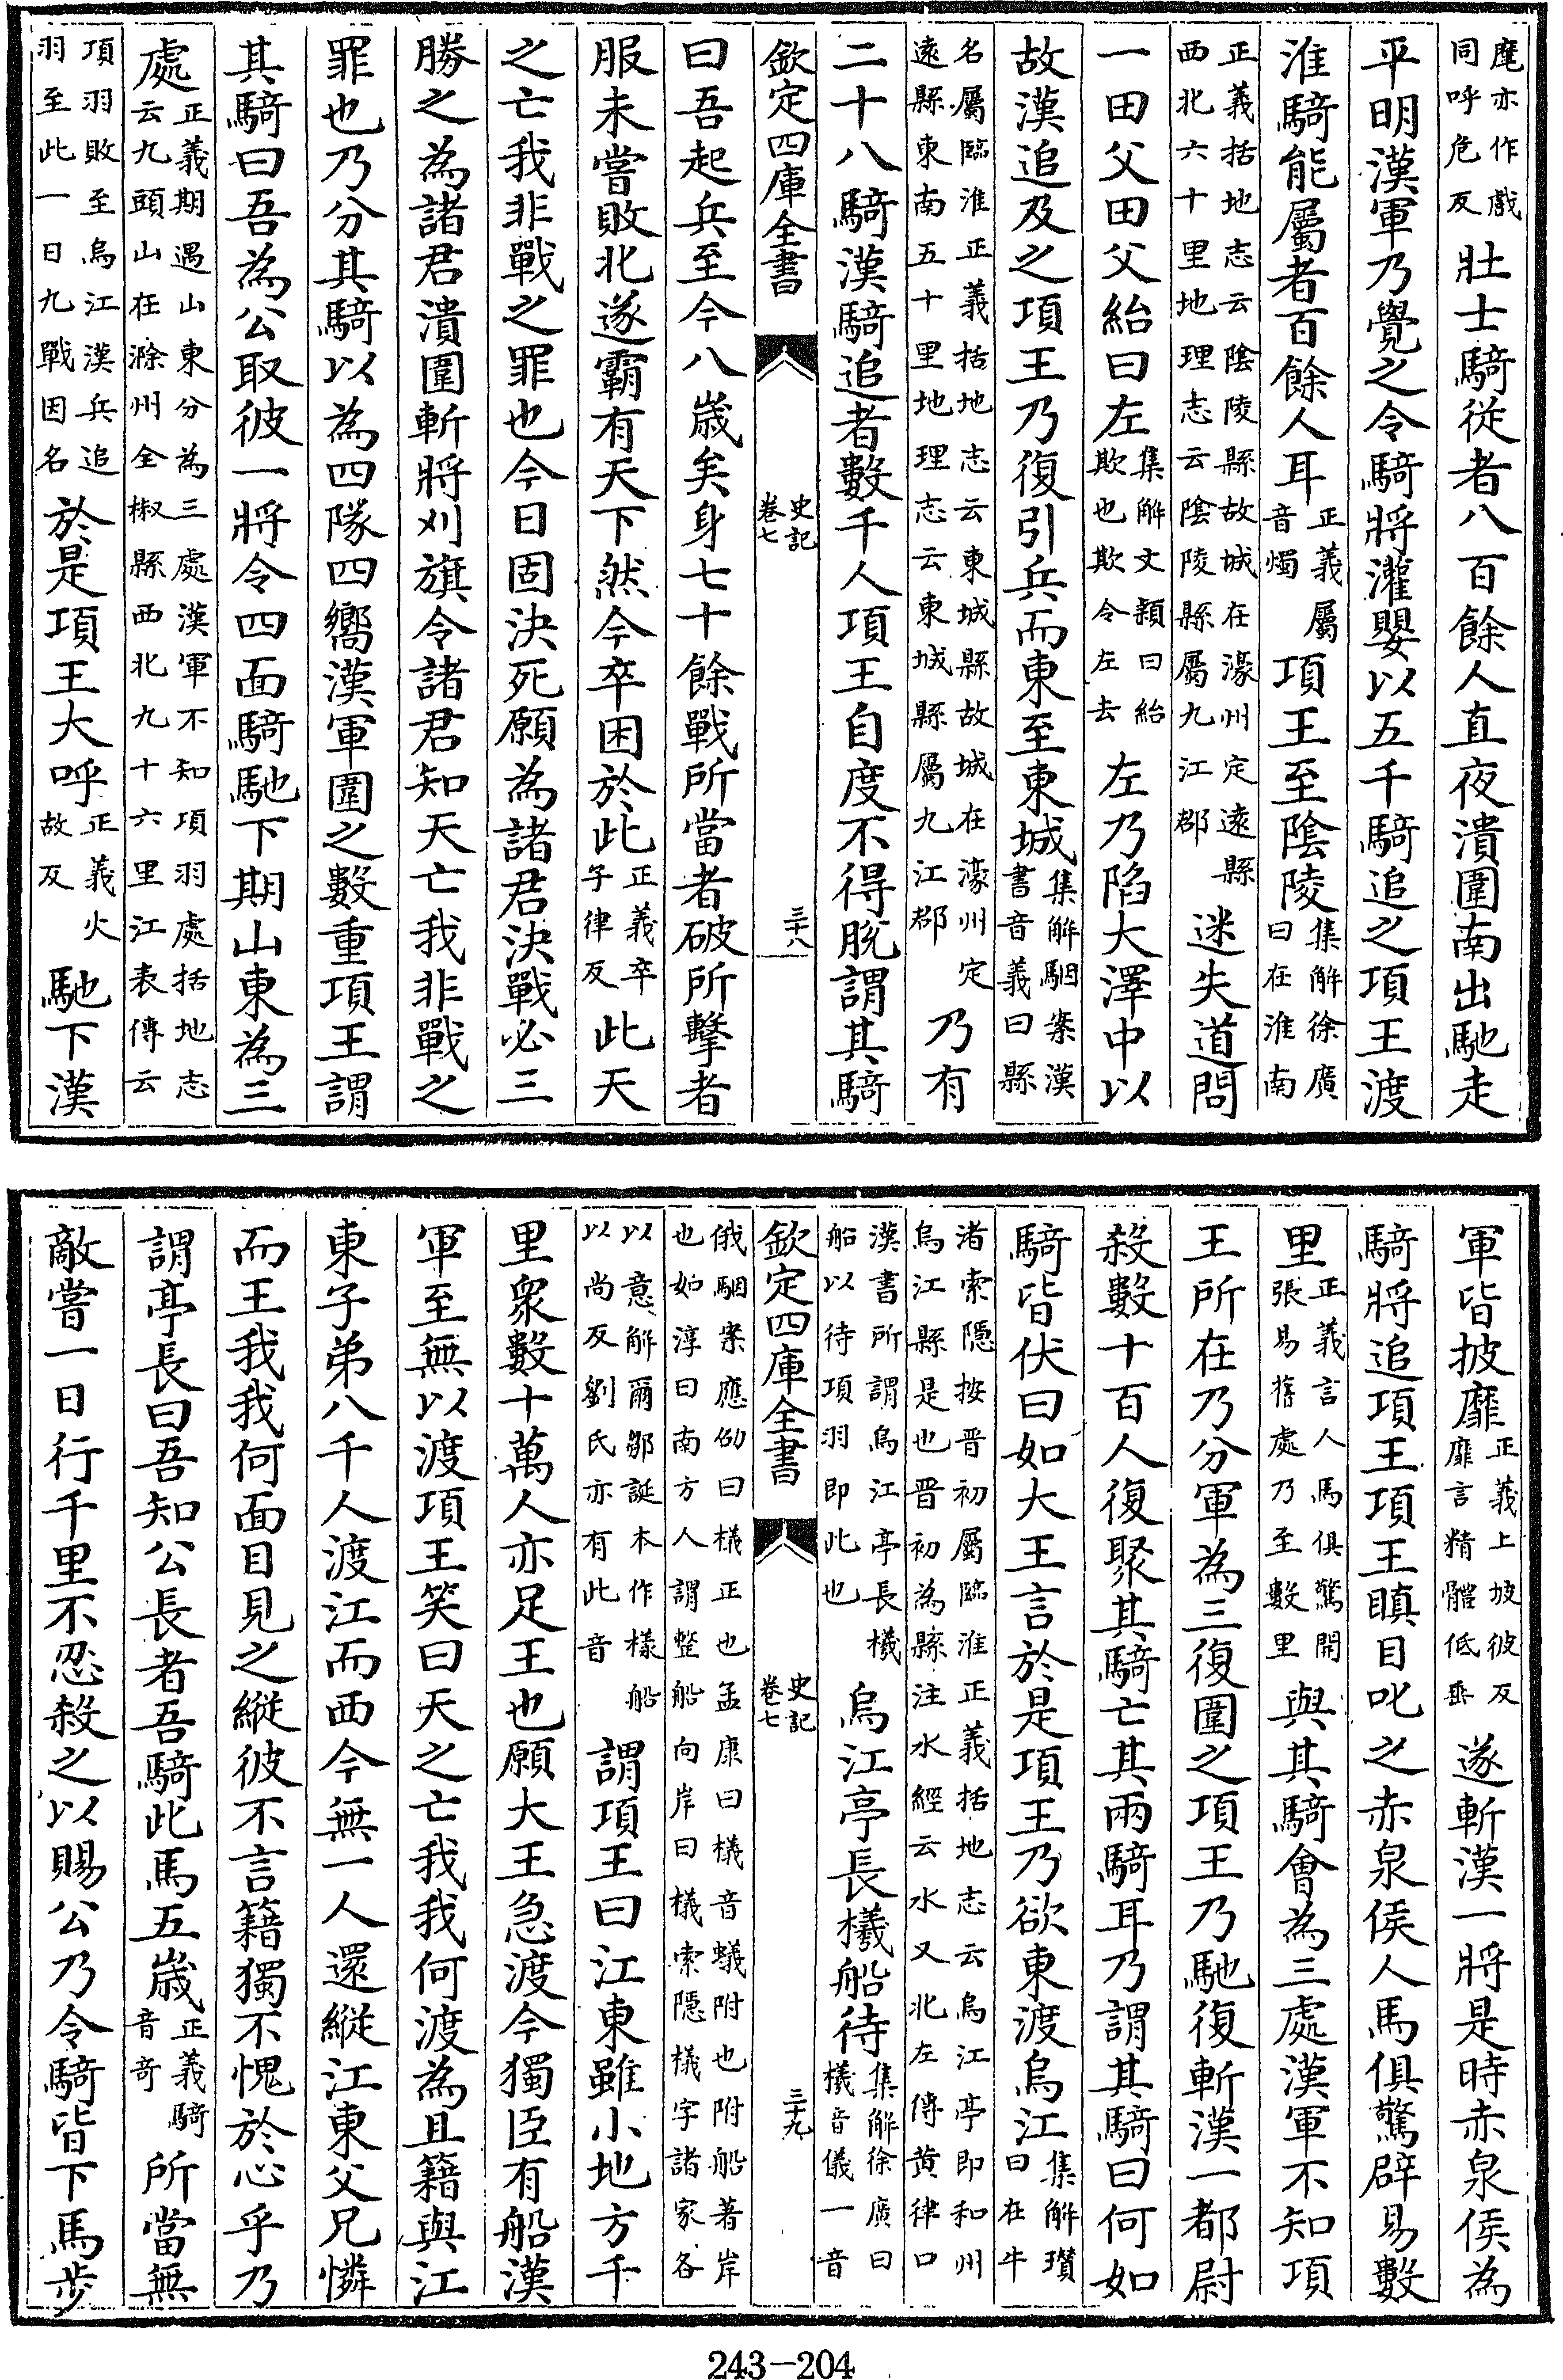 麾亦作戲同呼危反壯士騎從者八百餘人直夜潰圍南出馳走
平明漢軍乃覺之令騎將灌嬰以五千騎追之項王渡
淮騎能屬者百餘人耳正義屬音燭項王至隂陵集解徐廣曰在淮南
正義括地志云隂陵縣故城在濠州定遠縣西北六十里地理志云隂陵縣屬九江郡迷失道問
一田父田父紿曰左集解文穎曰紿欺也欺令左去左乃陷大澤中以
故漢追及之項王乃復引兵而東至東城集解駰案漢書音義曰縣
名屬臨淮正義括地志云東城縣故城在濠州定遠縣東南五十里地理志云東城縣屬九江郡乃有
二十八騎漢騎追者數千人項王自度不得脫謂其騎
欽定四庫全書 史記卷七 三十八
曰吾起兵至今八歳矣身七十餘戰所當者破所擊者
服未嘗敗北遂霸有天下然今卒困於此正義卒子律反此天
之亡我非戰之罪也今日固決死願為諸君決戰必三
勝之為諸君潰圍斬將刈旗令諸君知天亡我非戰之
罪也乃分其騎以為四隊四嚮漢軍圍之數重項王謂
其騎曰吾為公取彼一將令四面騎馳下期山東為三
處正義期遇山東分為三處漢軍不知項羽處括地志云九頭山在滁州全椒縣西北九十六里江表傳云
項羽敗至烏江漢兵追羽至此一日九戰因名於是項王大呼正義火故反馳下漢
軍皆披靡正義上坡彼反靡言精體低垂遂斬漢一將是時赤泉侯為
騎將追項王項王瞋目叱之赤泉侯人馬俱驚辟易數
里正義言人馬俱驚開張易舊處乃至數里與其騎會為三處漢軍不知項
王所在乃分軍為三復圍之項王乃馳復斬漢一都尉
殺數十百人復聚其騎亡其兩騎耳乃謂其騎曰何如
騎皆伏曰如大王言於是項王乃欲東渡烏江集解瓚曰在牛
渚索隱按晉初屬臨淮正義括地志云烏江亭即和州烏江縣是也晉初為縣注水經云水又北左傳黄律口
漢書所謂烏江亭長檥船以待項羽即此也烏江亭長檥船待集解徐廣曰檥音儀一音
欽定四庫全書 史記卷七 三十九
俄駰案應劭曰檥正也孟康曰檥音蟻附也附船著岸也如淳曰南方人謂整船向岸曰檥索隱檥字諸家各
以意解爾鄒誕本作樣船以尚反劉氏亦有此音謂項王曰江東雖小地方千
里衆數十萬人亦足王也願大王急渡今獨臣有船漢
軍至無以渡項王笑曰天之亡我我何渡為且籍與江
東子弟八千人渡江而西今無一人還縱江東父兄憐
而王我我何面目見之縱彼不言籍獨不愧於心乎乃
謂亭長曰吾知公長者吾騎此馬五歳正義騎音奇所當無
敵嘗一日行千里不忍殺之以賜公乃令騎皆下馬步
243-204